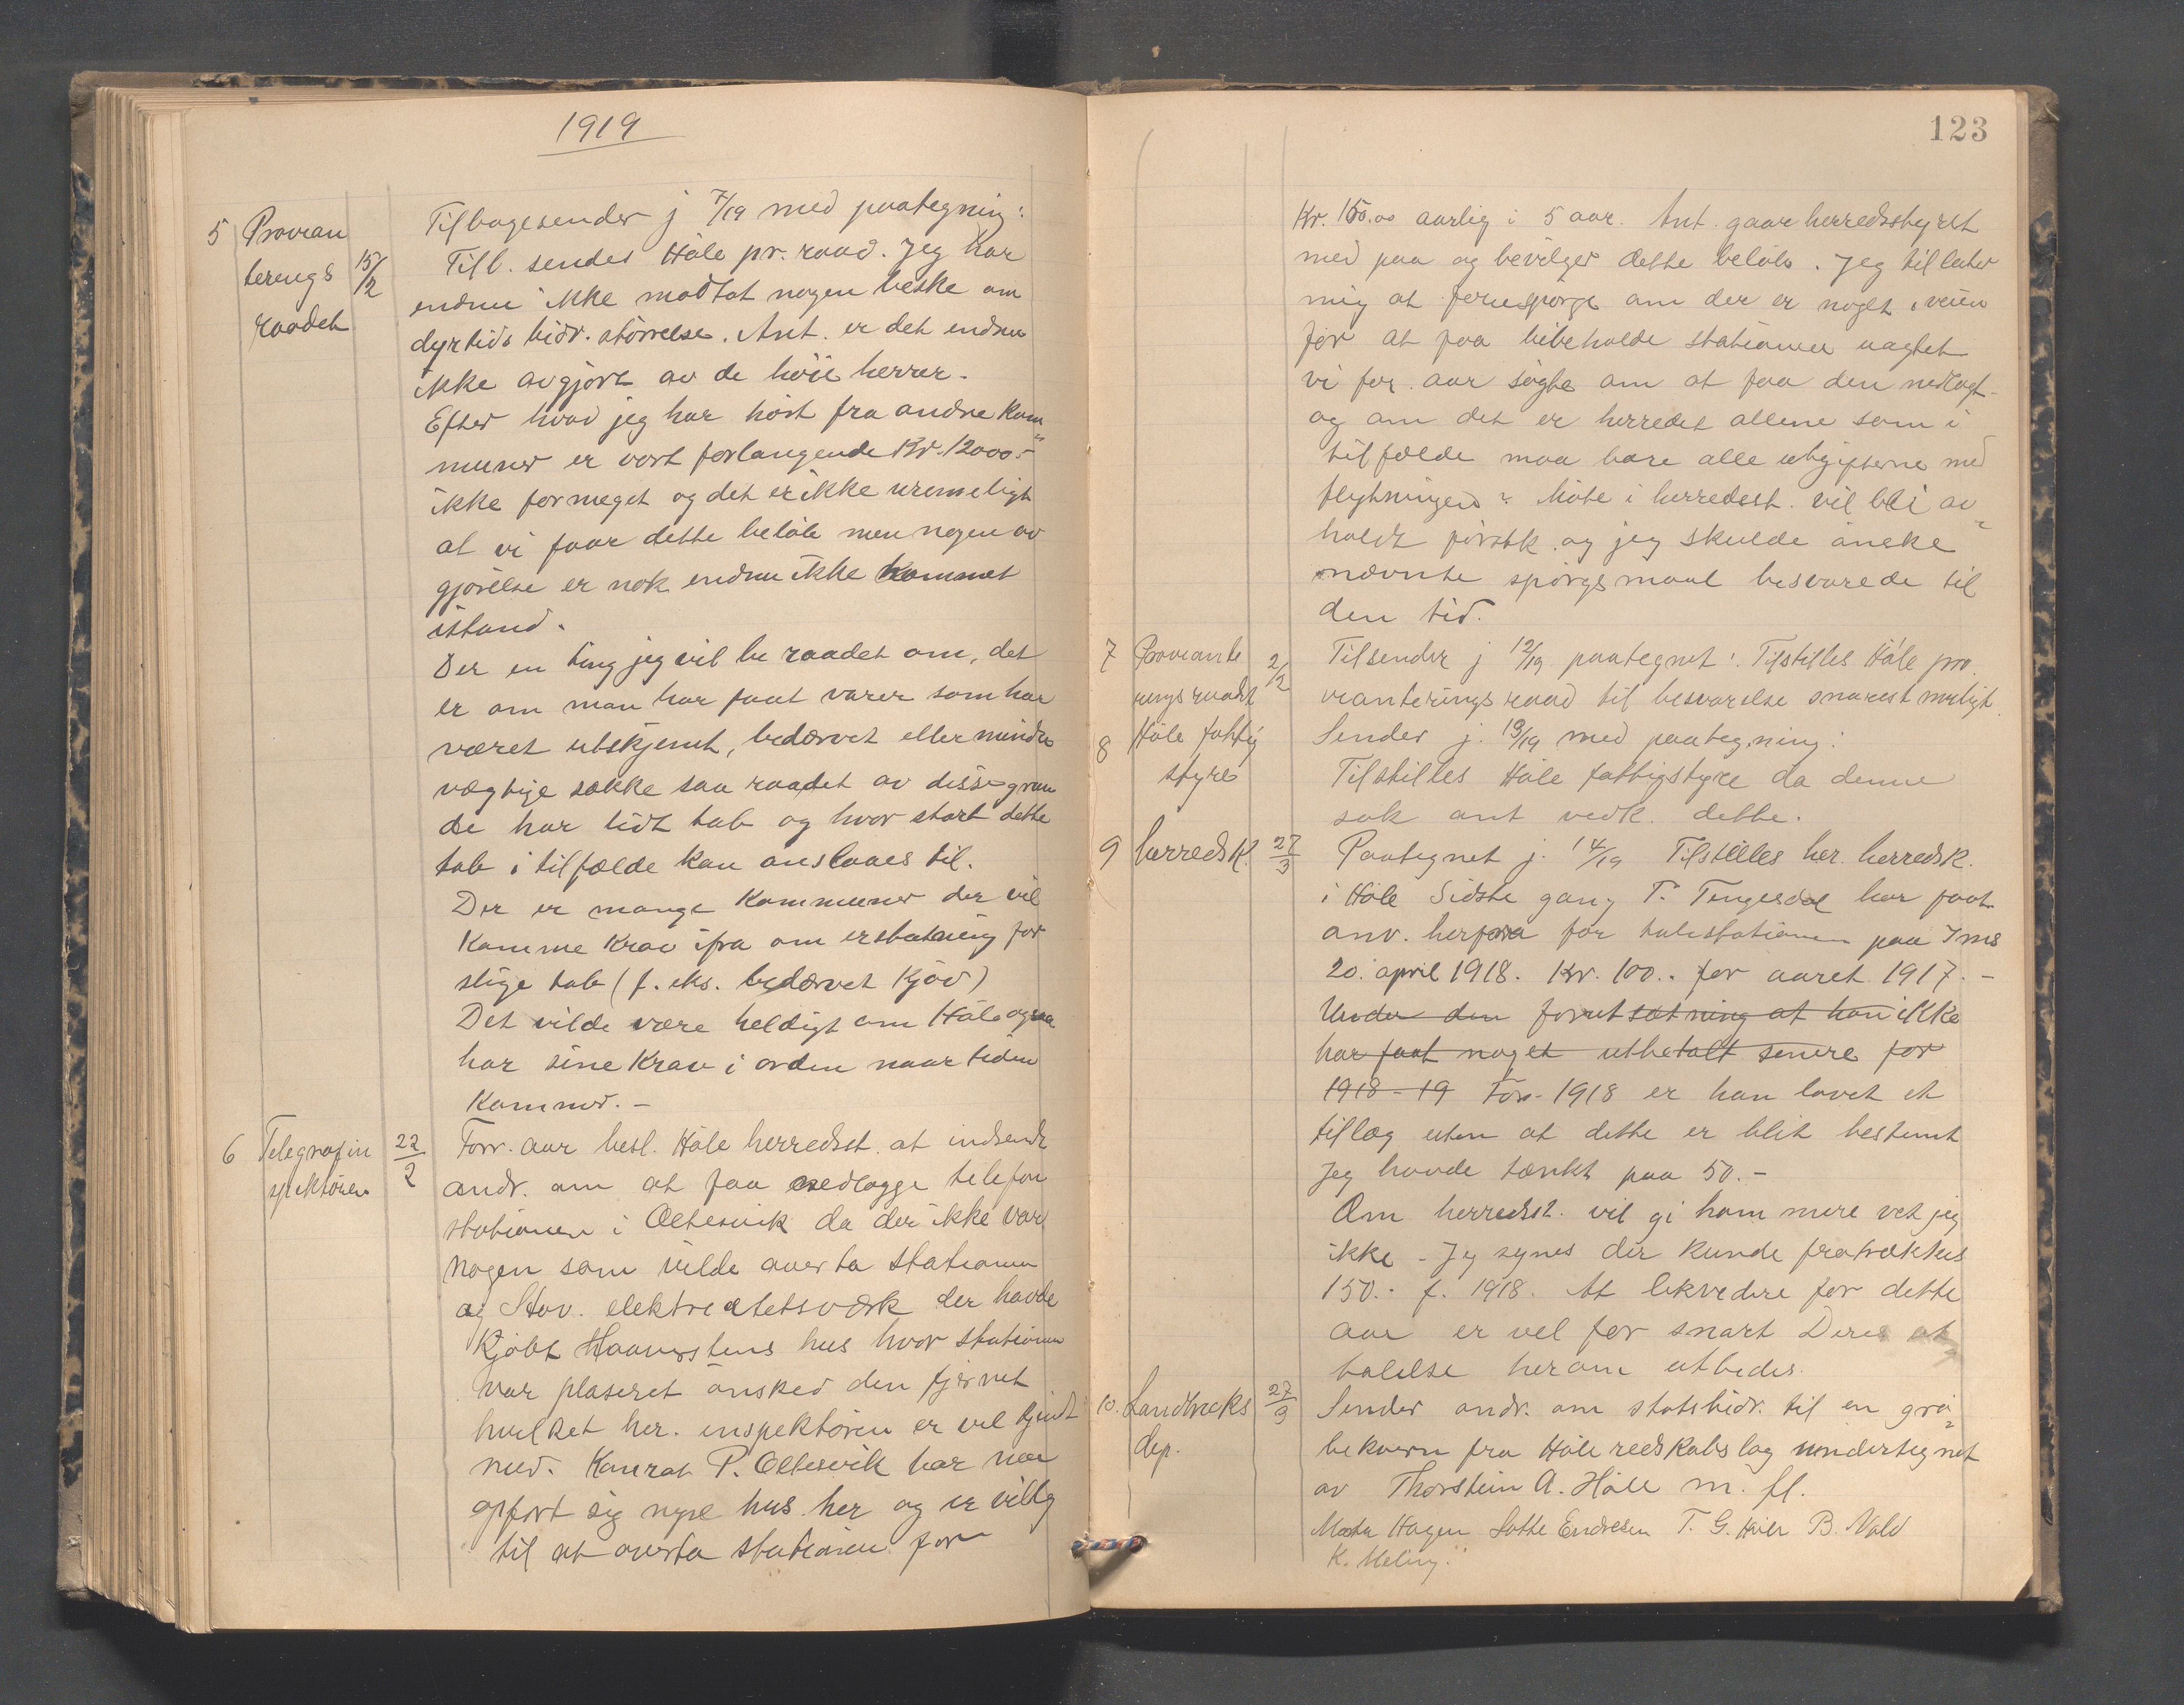 1919
5 Provian
terings 15/2
raadet
Tilbagesender j 7/19 med paategning:
Tilb. sendes Høle pr. raad. Jeg har
endnu ikke modtat nogen beske om
dyrtids bidr. størrelse. Ant. er det endnu
ikke avgjort av de høie herrer.
Efter hvad jeg har hørt fra andre kom
muner er vort forlangende Kr. 12000.-
ikke formeget og det er ikke urimeligt
at vi faar dette beløb men nogen av
gjørelse er nok endnu ikke kommet
istand.
Der en ting jeg vil be raadet om, det
er om man har faat varer som har
været utskjemt, bedærvet eller mindre
vægtige sække saa raadet av disse grun
de har lidt tab og hvor stort dette
tab i tilfælde kan anslaaes til.
Der er mange kommuner der vil
komme krav ifra om erstatning for
slige tab (f. eks. bedærvet kjød)
Det vilde være heldigt om Høle ogsaa
har sine krav i orden naar tiden
kommer. -
6 Telegrafin 22/2
spektøren
Forr. aar besl. Høle herredsst. at indsende
andr. om at faa nedlagge telefon
stationen i Oltesvik da der ikke var
nogen som vilde overta stationen
og Stav. elektricitetsværk der havde
kjøbt Haaverstens hus hvor stationen
var plaseret ønsked den fjernet
hvilket her. inspektøren er vel kjendt
med. Konrad P. Oltesvik har nu
opført sig nyt hus her og er villig
til at overta stationen for
123
Kr. 150.00 aarlig i 5 aar. Ant. gaar herredsstyret
med paa og bevilger dette beløb. Jeg tillater
mig at forespørge om der er noget i veien
for at faa bibeholde stationen uagtet
vi for. aar søgte om at faa den nedlagt
og om det er herredet allene som i
tilfælde maa bære alle utgifterne med
flytningen? Møte i herredsst. vil bli av
holdt førstk. og jeg skulde ønske
nævnte spørgsmaal besvarede til
den tid.
7 Proviante 2/2
ringsraadet
Tilsender j 12/19 paategnet: Tilstilles Høle pro
vianteringsraad til besvarelse snarest muligt.
8 Høle fattig
styre
Sender j. 13/19 med paategning:
Tilstilles Høle fattigstyre da denne
sak ant vedk. dette.
9 herredsk. 27/3
Paategnet j. 14/19 Tilstilles her. herredsk.
i Høle Sidste gang T. Tengesdal har faat
anv. herfra for talestationen paa Ims
20. april 1918. Kr. 100.. for aaret 1917. -
Under den forutsætning at han ikke
har faat noget utbetalt senere for
1918 - 19 For 1918 er han lovet et
tillæg uten at dette er blit bestemt
Jeg havde tænkt paa 50.-
Om herredsst. vil gi ham mere vet jeg
ikke - Jeg synes der kunde fratrækkes
150.- f. 1918. At likvidere for dette
aar er vel for snart Deres ut
talelse herom utbedes.
10. Landbruks 27/3
dep.
Sender andr. om statsbidr. til en grø
bekvern fra Høle redskabslag undertegnet
av Thorstein A. Høle m. fl.
Hagen Lotte Endresen T. G. Høier B. Vold
K. Meling.